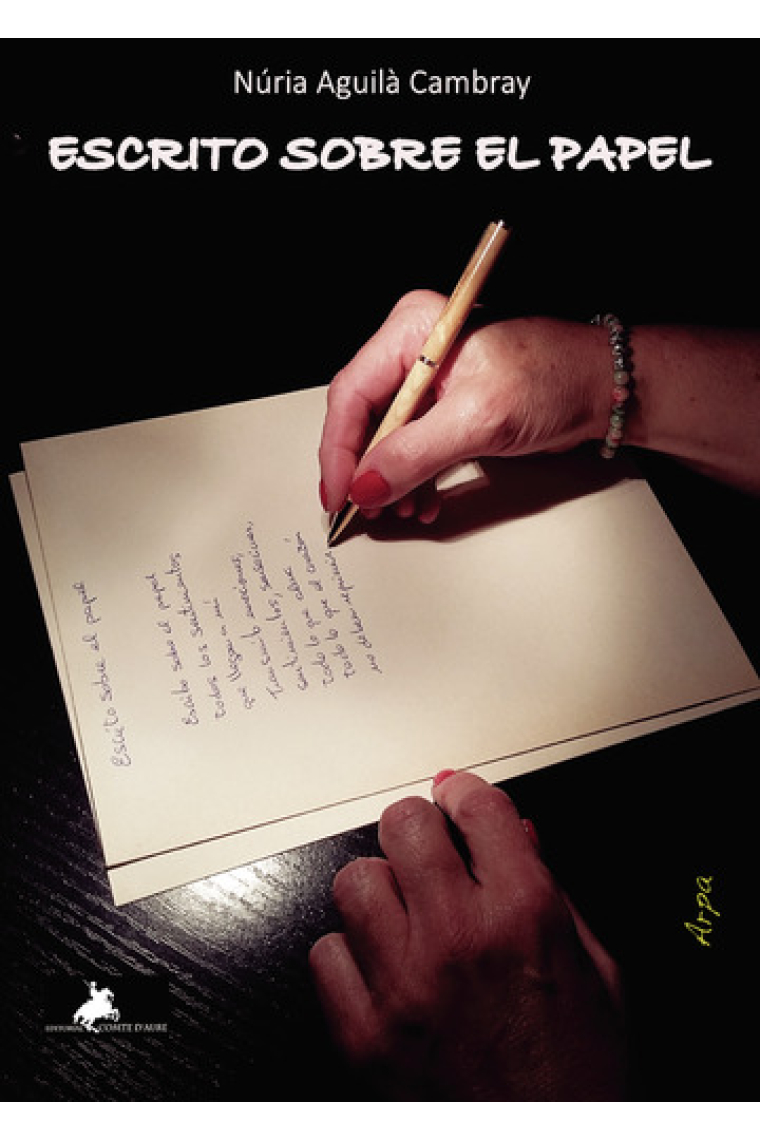 Núria Aguilà Cambray
ESCRITO SOBRE EL PAPEL
Escrito sobre el papel
Escribo sobre el papel
todos los sentimientos
que llegan a mí
Transcribo emociones,
sensaciones,
sentimientos,
todo lo que abre
todo lo que el corazón
no deben reprimir
Arpa
EDITORIAL COMTE D'AURE